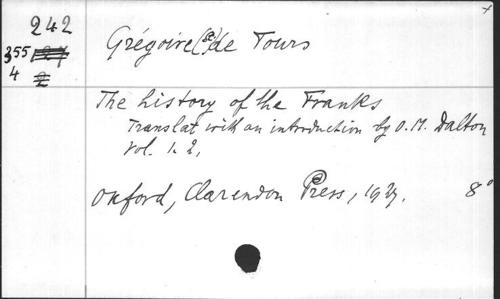 242
355
4
Grégoire (St) de Tours
The history of the Franks
Translat. with an introduction by O. M. Dalton
Vol. 1. 2,
Oxford, Clarendon Press, 1927. 8°